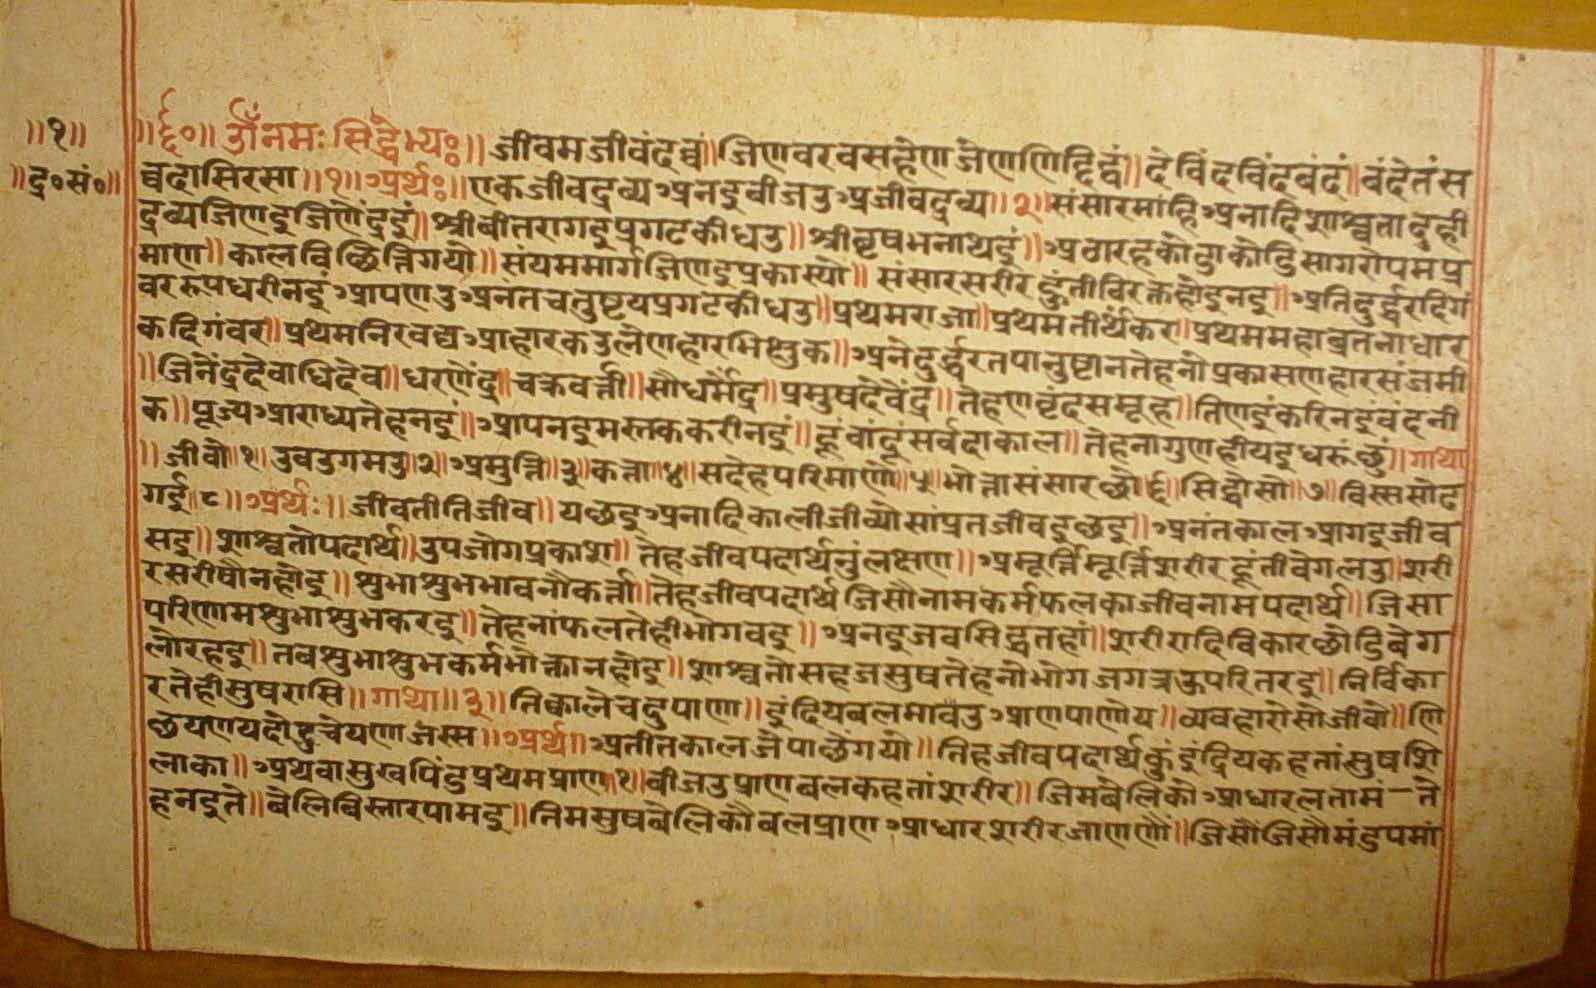 ॥१॥ ॥६०॥ ॐ नमः सिद्धेभ्यः॥ जीवमजीवंदव्वं॥ जिणवरवसहेणजेणणिद्दिट्ठं॥ देविंदविंदवंदं॥ वंदेतंस
॥द्र॰सं॰॥ व्वदासिरसा॥१॥अर्थः॥ एकजीवद्रव्यअनइबीजउअजीवद्रव्य॥२॥संसारमांहिअनादिशाश्वताइही
द्रव्यजिणइजिणेंद्रइं॥ श्रीवीतरागइप्रगटकीधउ॥ श्रीवृषभनाथइं॥ अठारहकोडाकोडिसागरोपमप्र
माण॥ कालविछित्तिगयो॥ संयममार्गजिणइप्रकास्यो॥ संसारसरीरहुंतीविरक्तहोइनइ॥ अतिदुर्द्धरदिगं
वररुपधरीनइं आपणउअनतचतुष्टयप्रगटकीधउ॥ प्रथमराजा॥ प्रथमतीर्थंकर॥ प्रथममहाव्रतनाधार
कदिगंवर॥ प्रथमनिरवद्यआहारकउलेणहारभिक्षुक॥ अनेदुर्द्धरतपानुष्टानतेहनोप्रकासणहारसंजमी
॥जिनेंद्रदेवाधिदेव॥ धरणेंद्र॥ चक्रवर्त्ती॥ सौधर्मेंद्र॥ प्रमुषदेवेंद्र॥ तेहणवृंदसमूह॥ तिणइंकरिनइवंदनी
क॥ पूज्यआराध्यतेहनइं॥ आपनइमस्तककरीनइं॥ हूंवांदूंसर्वदाकाल॥ तेहनागुणहीयइधरुंछुं॥ गाथा
॥जीवो॥१॥उवउगमउ॥२॥अमुत्ति॥३॥कत्ता॥४॥सदेहपरिमाणो॥५॥भोत्तासंसारछो॥६॥सिद्धोसो॥७॥विस्ससोढ
गई॥८॥अर्थः॥ जीवतीतिजीव॥ यछइअनादिकालीजीव्योसांप्रतजीवइछइ॥ अनंतकालआगइजीव
सइ॥ शाश्वतोपदार्थ॥ उपजोगप्रकाश॥ तेहजीवपदार्थनुंलक्षण॥ अमूर्त्तिमूर्त्तिशरीरहूंतीवेगलउ॥ शरी
रसरीषौनहोइ॥ शुभाशुभभावनौकर्त्ता॥ तेहजीवपदार्थजिसौनामकर्मफलकाजीवनामपदार्थ॥ जिसा
परिणमशुभाशुभकरइ॥ तेहनांफलतेहीभोगवइ॥ अनइजवसिद्धतहां॥ शरीरादिविकारछोडिवेग
लोरहइ॥ तबशुभाशुभकर्मभोक्तानहोइ॥ शाश्वतोसहजसुषतेहनोभोगजगत्रऊपरितरइ॥ निर्विका
रतेहीसुषरासि॥ गाथा॥३॥ तिक्कालेचदुपाणा॥ इंदियबलमावउआणपाणोय॥ व्यवहारोसोजीवो॥ णि
छयणयदोदुचेयणाजस्स॥ अर्थ॥ अतीतकालजेपाछेंगयो॥ तिहजीवपदार्थकुंइंद्रियकहतांसुषशि
लाका॥ अथवासुखपिंडप्रथमप्राण॥१॥बीजउप्राणबलकहतांशरीर॥ जिमबेलिकोआधारलतामं—ते
हनइते॥ बेलिविस्तारपामइ॥ तिमसुषबेलिकौबलप्राणआधारशरीरजाणणौ॥ जिसौजिसौमंडपमां